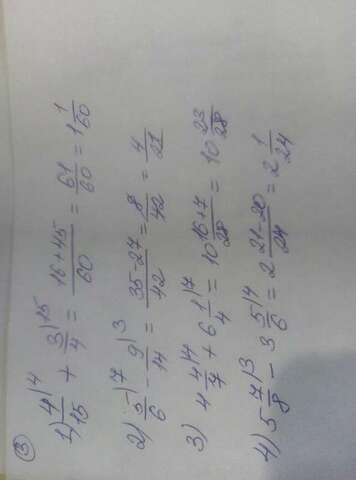 ③
1) 4/15 |4 + 3/4 |15 = (16+45)/60 = 61/60 = 1 1/60
2) 5/6 |7 - 9/14 |3 = (35-27)/42 = 8/42 = 4/21
3) 4 4/7 |4 + 6 1/4 |7 = 10 (16+7)/28 = 10 23/28
4) 5 7/8 |3 - 3 5/6 |4 = 2 (21-20)/24 = 2 1/24